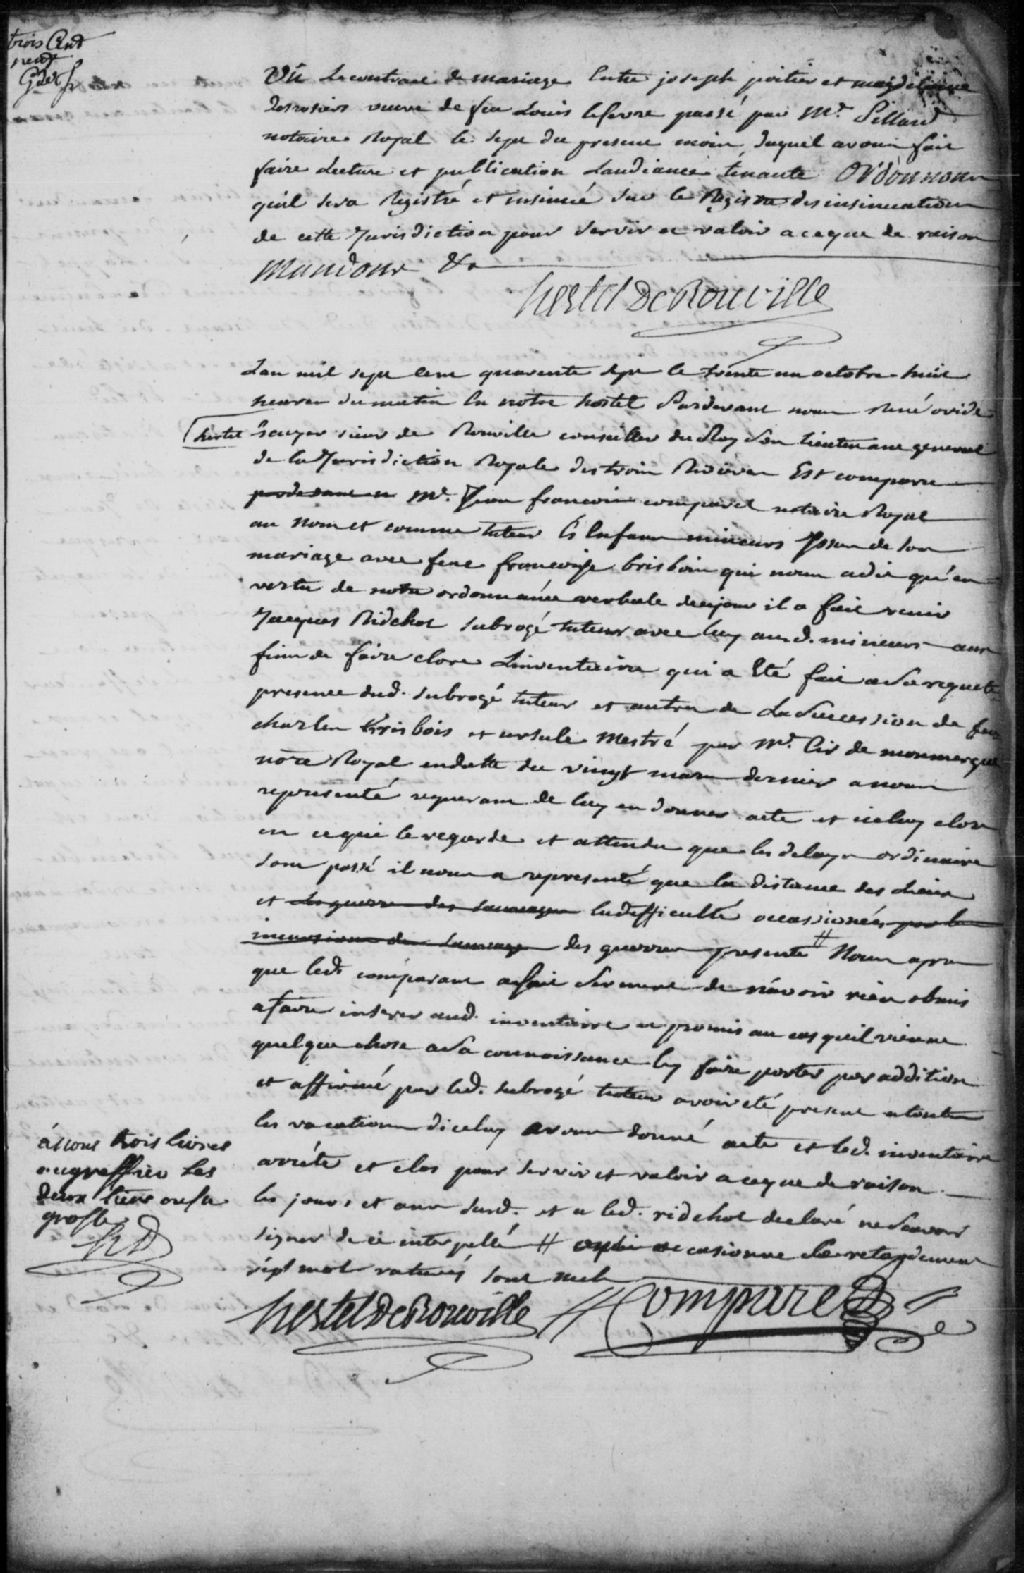 trois Cent
neuf
Vû le contract de mariage Entre joseph poitier et magdelaine
Desrosiers veuve de feu Louis lefevre passé par Mr. Pillard
notaire Royal le sept du present mois, Duquel avons fait
faire Lecture et publication Laudiance tenante Ordonnons
quil sera Registré et insinué sur le Registre des insinuations
de cette Jurisdiction pour servir et valoir a ce que de raison
Mandons &a
hertel De Rouville
Lan mil sept Cent quarente sept le trente un octobre huit
heures du matin En notre hostel Pardevant nous René ovide
hertel Ecuyer sieur de Rouville conseiller du Roy Son Lieutenant general
de la Jurisdiction Royale des trois Rivieres Est comparu
Mr. Jean francois comparet notaire Royal
au nom et comme tuteur Es Enfans mineurs Issus de son
mariage avec feue francoise brisbois qui nous a dit qu'en
vertu de notre ordonnance verbale de ce jour il a fait venir
Jacques Ridchot subrogé tuteur avec luy aud. mineurs aux
fins de faire clore Linventaire qui a Eté fait a sa requete
presence dud. subrogé tuteur et autres de La Succession de feu
charles brisbois et ursule Mestré par Mr. Cir de monmerque
nore Royal endatte du vingt mars dernier a nous
representé requerant de luy en donner acte et iceluy clore
en ce qui le regarde et attendu que les delays ordinaire
sont passé il nous a representé que la distance des Lieux
et les guerres des sauvages Ladifficulté occassionnées par les
incursions des sauvages des guerres presente # Nous apres
que led. comparant a fait Serment de n'avoir rien obmis
a faire inserer aud. inventaire et promis au cas quil vienne
quelque chose a sa connoissance Ly faire porter par addition
et affirmé par led. subrogé tuteur avoir eté present a toutes
les vacations diceluy avons donné acte et led. inventaire
arrété et clos pour servir et valoir a ce que de raison
les jours et ans susd. et a led. ridchot declaré ne Scavoir
signer de ce interpellé # occasionne Le retardement
sept mots raturés sont nuls
trois livres
au greffier les
deux tiers
grosse
hD
hertel De Rouville
Comparet